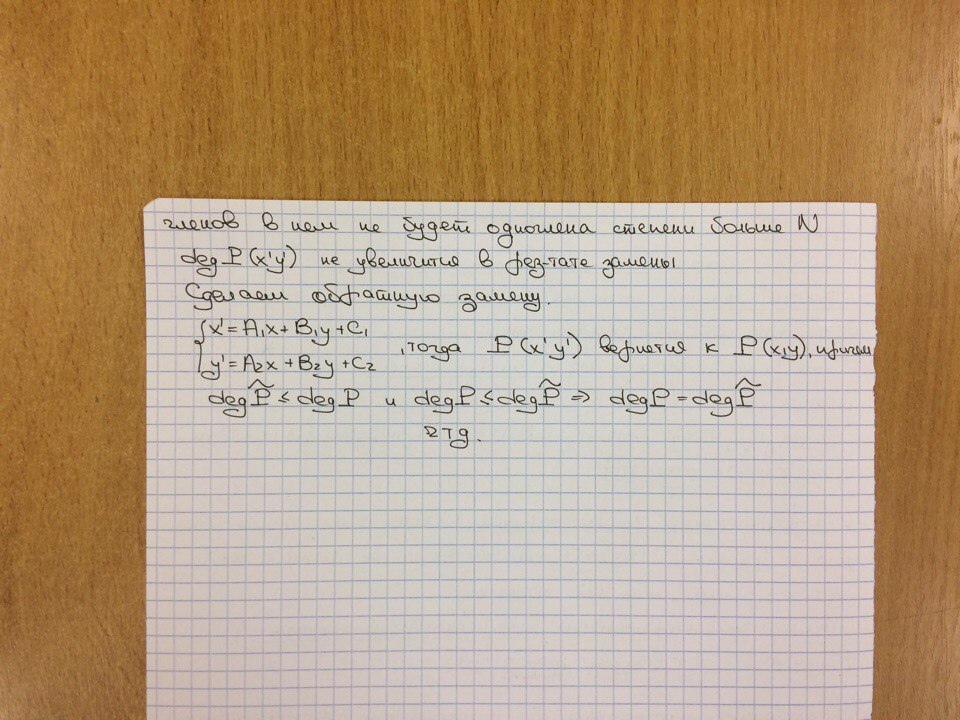 членов в нем не будет одночлена степени больше N
deg P(x'y') не увеличится в рез-тате замены
Сделаем обратную замену.
{x' = A₁x + B₁y + C₁
{y' = A₂x + B₂y + C₂ , тогда P(x'y') вернется к P(x,y), причем
deg P̃ ≤ deg P и deg P ≤ deg P̃ ⇒ deg P = deg P̃
чтд.